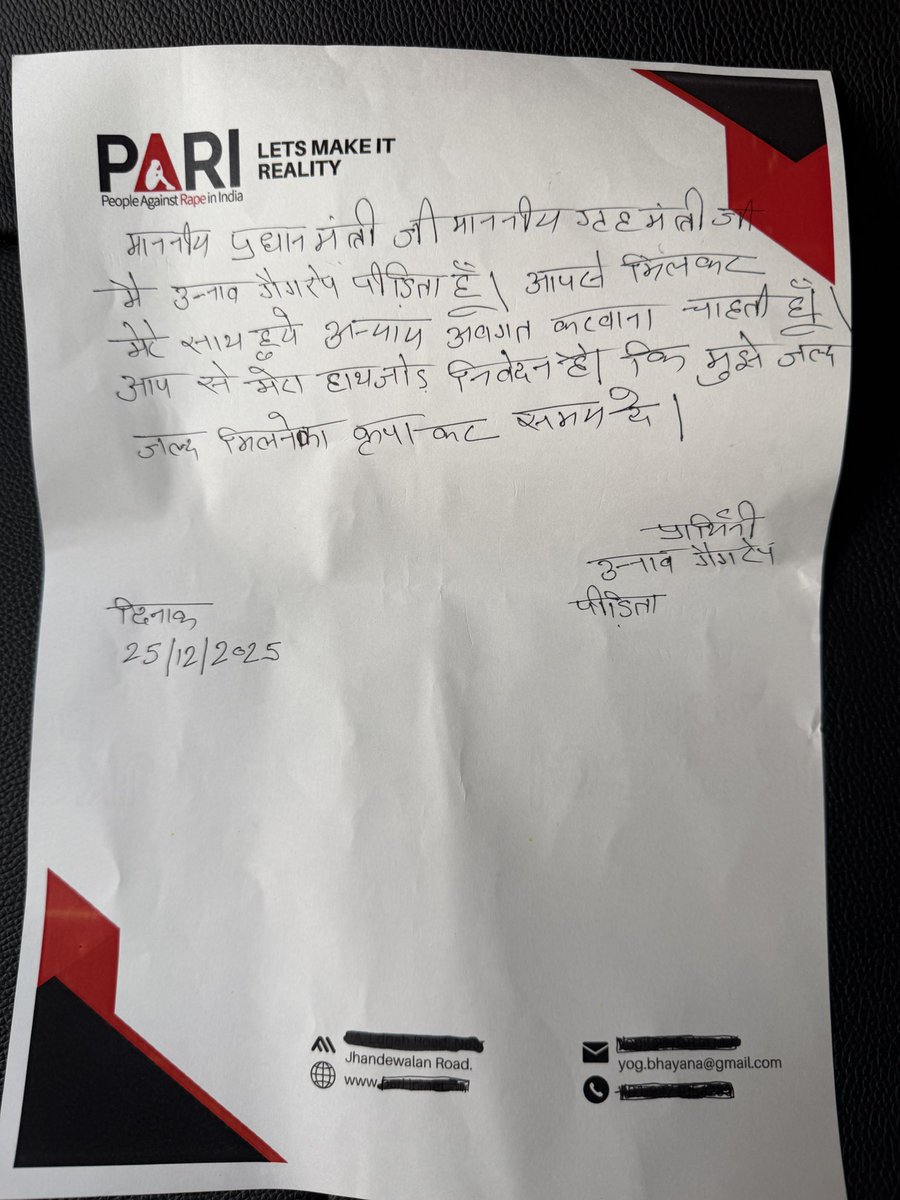 PARI
LETS MAKE IT
REALITY
People Against Rape in India
माननीय प्रधान मंत्री जी माननीय गृह मंत्री जी
मै उन्नाव गैगरेप पीड़िता हूँ। आपसे मिलकर
मेरे साथ हुये अन्याय अवगत करवाना चाहती हूँ।
आप से मेरा हाथजोड़ निवेदन है। कि मुझे जल्द
जल्द मिलनेका कृपा कर समय दे।
प्रार्थिनी
उन्नाव गैगरेप
पीड़िता
दिनाक
25/12/2025
Jhandewalan Road.
www.
yog.bhayana@gmail.com